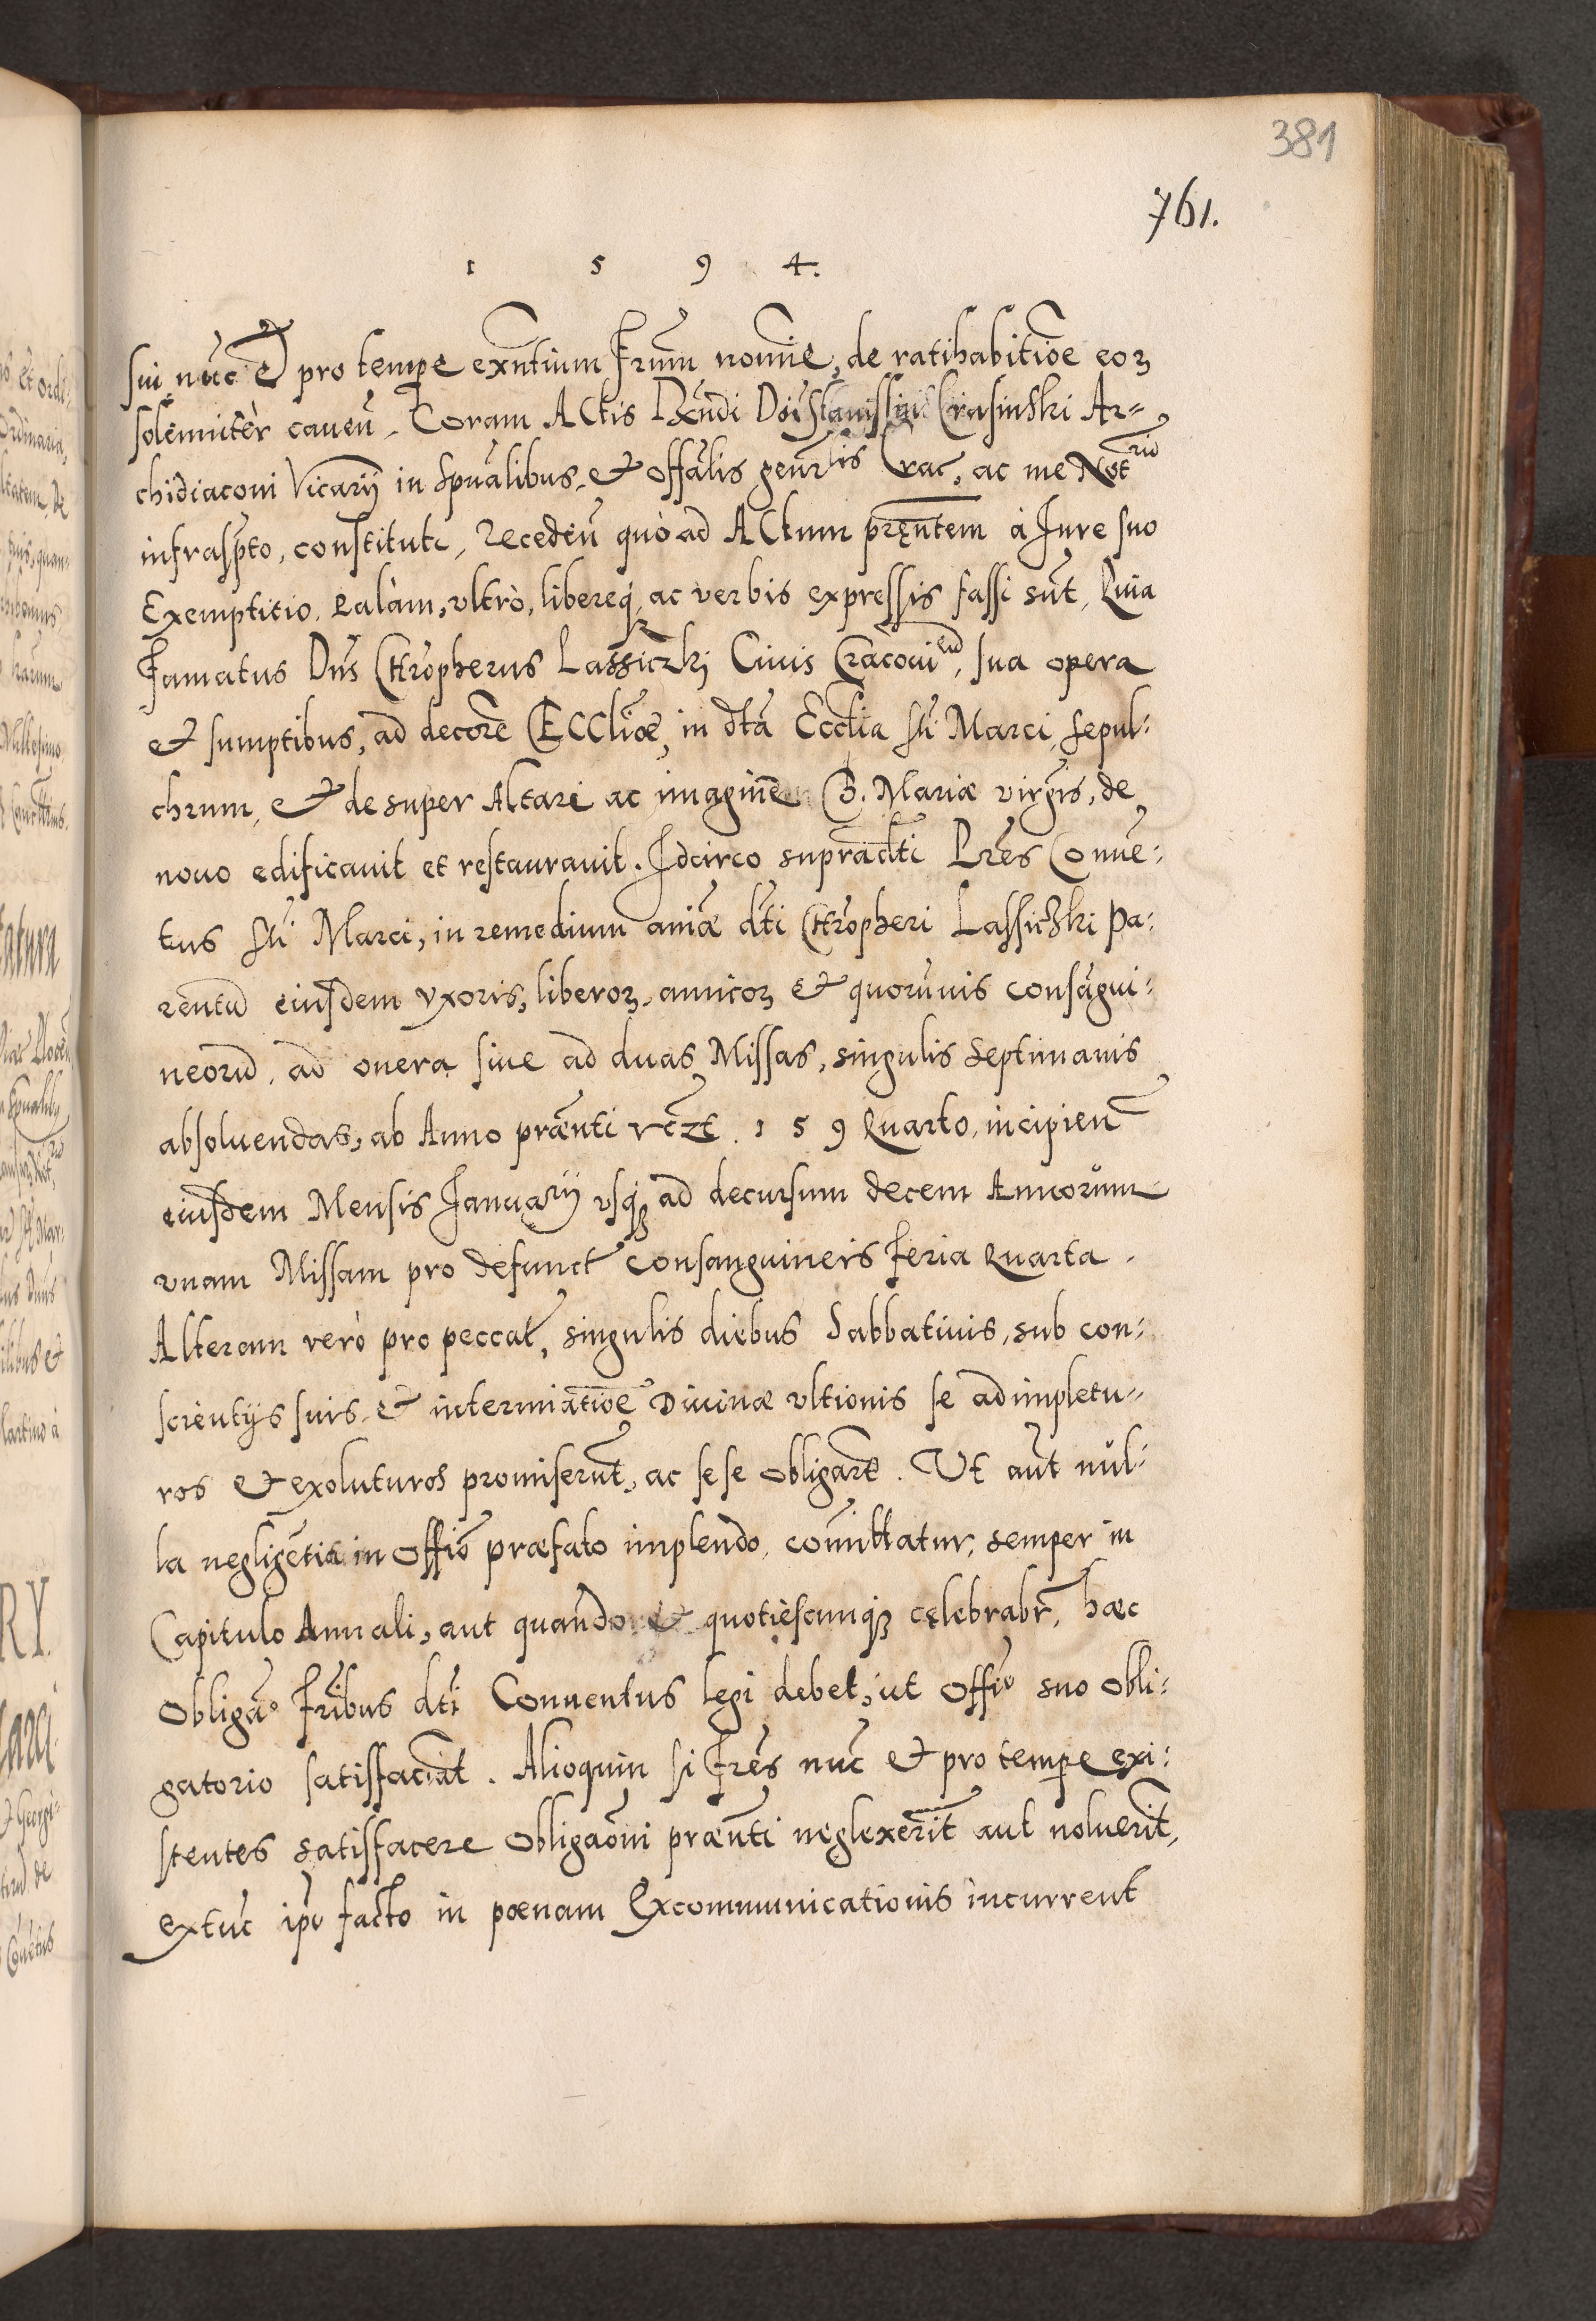 381
761.
1 5 9 4.
sui nūc & pro tempe exn̄tium Frum nomīe, de ratihabitiōe eoꝝ
solēnniter caveñ. Coram Actis Rn̄di Dn̄i Stanislai Crasinski Ar=
chidiaconi Vicarij in Spūalibus, & offālis genr̄lis Crac, ac me Not̄riū
infrasp̄to, constituti, Recedeñ quò ad Actum pręn̄tem à Jure suo
Exemptitio, palàm, vltrò, libereqꝫ ac verbis expressis fassi sūt, Quia
Famatus Dn̄s Chr̄opherus Lassiczki Civis Cracovieñ, sua opera
et sumptibus, ad decorē Eccliæ, in dt̄a Ecclia Sti Marci, sepul:
chrum, & desuper Altare ac imaginē B. Mariæ virḡis, de
novo edificavit et restauravit. Idcirco supradc̄ti Prēs Convē:
tus Sti Marci, in remedium aniæ dt̄i Chr̄opheri Lassiczki Pa:
rentū eiusdem vxoris, liberoꝝ, amicoꝝ & quorūvis consāgui:
neorū, ad onera sive ad duas Missas, singulis septimanis
absoluendas, ab Anno præn̄ti vc̄zt. 1 5 9 Quarto, incipieñ
eiusdem Mensis Januarij vsqꝫ ad decursum decem Annorum
vnam Missam pro defunct̄ consanguineis feria Quarta.
Alteram verò pro peccat̄, singulis diebus Sabbativis, sub con:
scientijs suis, & interminatiōe Divinæ vltionis se adimpletu=
ros & exoluturos promiserūt, ac sese obligarūt. Ut aūt nul:
la negligētia in offio præfato implendo, comittatur, semper in
Capitulo Annali, aut quando & quotièscunqꝫ cęlebrabr̄, hæc
Obligāo Fribus dt̄i Conventus legi debet, ut offio suo obli:
gatorio satisfaciāt. Alioquin si Frēs nūc & pro tempe exi:
stentes satisfacere obligaōni præn̄ti neglexerīt aut noluerīt,
extūc ip̄o facto in pœnam Excommunicationis incurrent